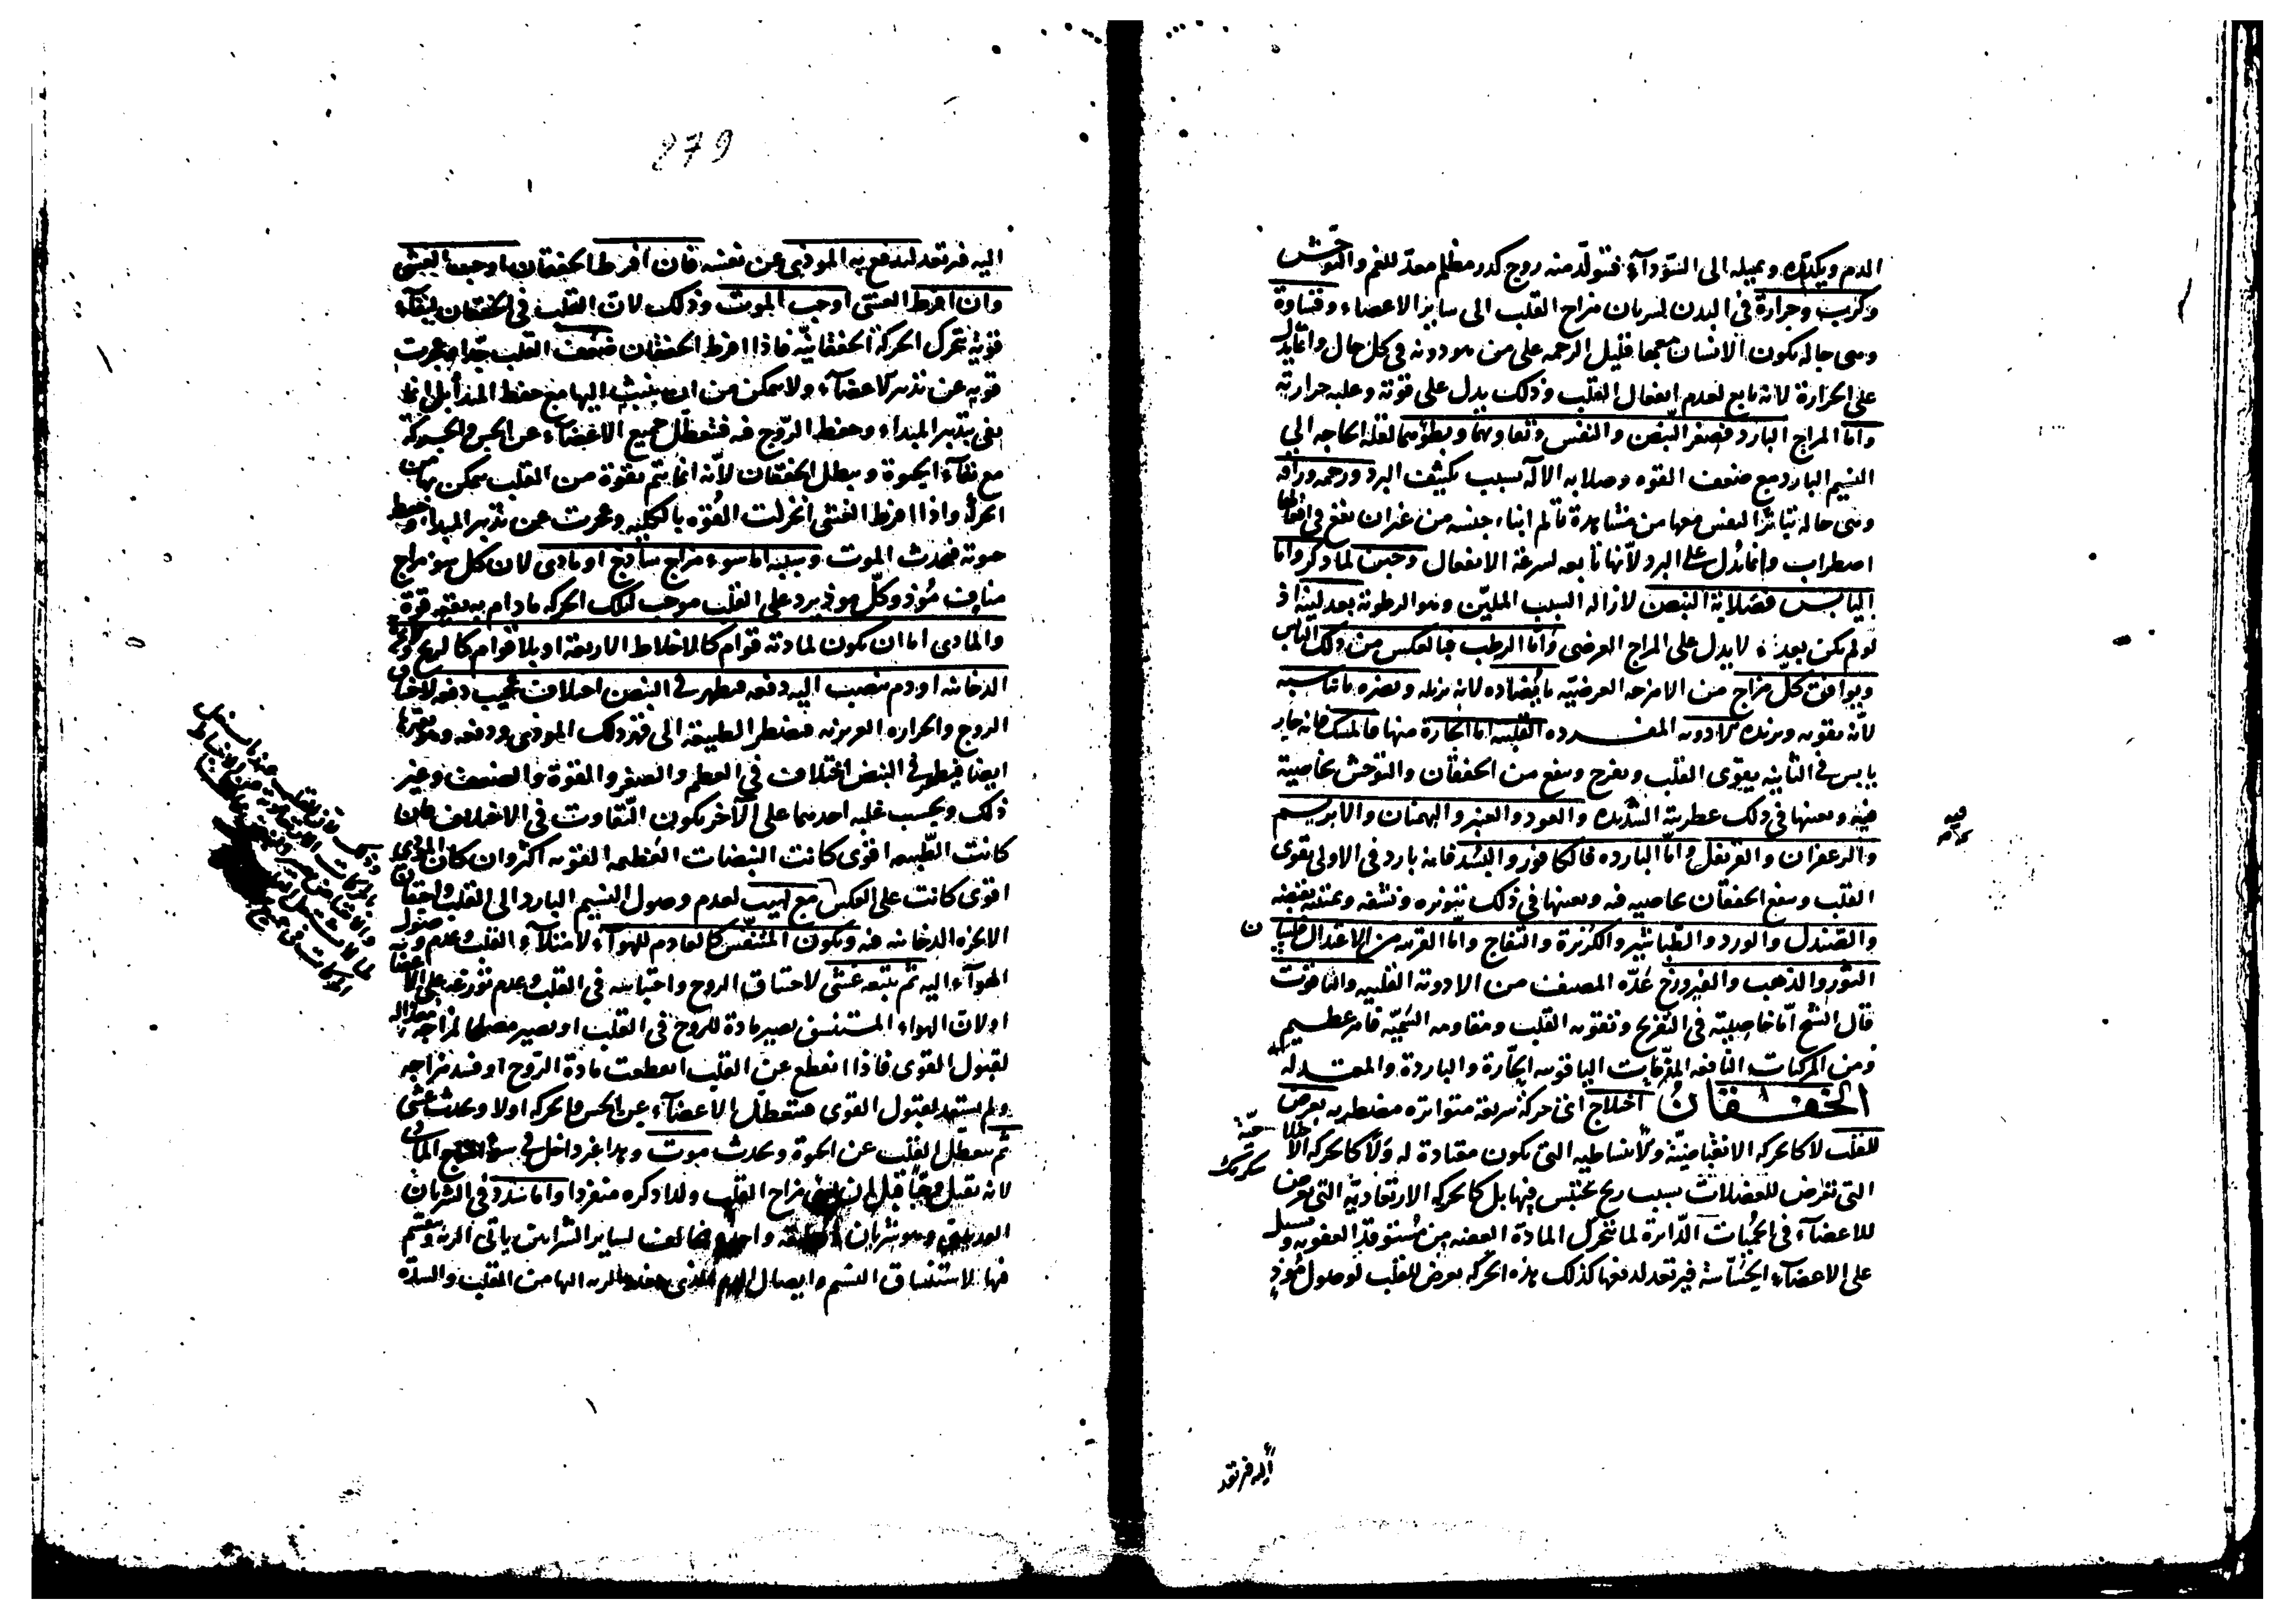 الدم ويكدره ويميله الى السوداء فتولد منه روح كدر مظلم معد للغم والتوحش
وكرب وحرارة فى البدن لسريان مزاج القلب الى ساير الاعضاء وقساوة
وهى حالة يكون الانسان معها قليل الرحمه على من هو دونه فى كل حال وانما يدل
على الحرارة لانه تابع لعدم انفعال القلب وذلك يدل على قوته وغلبه حرارته
واما المزاج البارد فصغر النبض والنفس وتفاوتهما وبطؤهما لقله الحاجه الى
النسيم البارد مع ضعف القوه وصلابه الاله بسبب تكثيف البرد ورحمه ورافه
وهى حاله يتاثر النفس معها من مشاهدة تالم ابناء جنسه من غير ان يقع فى افعالها
اضطراب وانما يدل على البرد لانها تابعه لسرعة الانفعال وجبن لما ذكر واما
اليابس فصلابة النبض لازاله السبب الملين وهو الرطوبة بعد لينه اذ
لو لم يكن بعده لا يدل على المزاج العرضى واما الرطب فبالعكس من ذلك اليابس
ويوافق كل مزاج من الامزجه العرضيه ما يضاده لانه يزيله ويضره ما يناسبه
لانه يقويه ويزيده الادويه المفرده القلبيه اما الحارة منها فالمسك فانه حار
يابس فى الثانيه يقوى القلب ويفرح وينفع من الخفقان والتوحش بخاصية
فيه ويعينها فى ذلك عطريته الشديده والعود والعنبر والبهمنان والابريسم
والزعفران والقرنفل واما البارده فالكافور والبسد فانه بارد فى الاولى يقوى
القلب وينفع الخفقان بخاصيه فيه ويعينها فى ذلك تنويره ونشفه ومتانته بقبضه
والصندل والورد والطباشير والكزبرة والتفاح واما القريبه من الاعتدال فلسان
الثور والذهب والفيروزج عده المصنف من الادوية القلبيه والياقوت
قال الشيخ اما خاصيته فى التفريح وتقويه القلب ومقاومه السميه فامر عظيم
ومن المركبات النافعه المفرحات الياقوتيه الحارة والباردة والمعتدله
الخفقان اختلاج اى حركة سريعة متواترة مضطربه يعرض
للقلب لا كالحركه الانقباضية والانبساطيه التى يكون معتادة له ولا كالحركه الاختلاجية
التى تعرض للعضلات بسبب ريح تحتبس فيها بل كالحركه الارتعادية التى تعرض
للاعضاء فى الحميات الدائرة لما تتحرك المادة العفنه من مستوقد العفونه وتسيل
على الاعضاء الحساسة فيرتعد لدفعها كذلك هذه الحركه يعرض للقلب لوصول موذ
اليه فيرتعد
279
اليه فيرتعد ليدفع به الموذى عن نفسه فان افرط الخفقان اوجب الغشى
وان افرط الغشى اوجب الموت وذلك لان القلب فى الخفقان لبقاء
قوته يتحرك الحركة الخفقانية فاذا افرط الخفقان ضعف القلب جدا وعجزت
قوته عن تدبير الاعضاء ولا يمكن من ان ينبث اليها مع حفظ المبدأ بل انما
يفى بتدبير المبداء وحفظ الروح فيه فتعطل جميع الاعضاء عن الحس والحركة
مع بقاء الحيوة ويبطل الخفقان لانه انما يتم بقوة من القلب يمكن بها من
الحركة واذا افرط الغشى انخزلت القوه بالكليه وعجزت عن تدبير المبداء وحفظ
حيوته فيحدث الموت وسببه اما سوء مزاج ساذج او مادى لان كل سوء مزاج
مناف موذ وكل موذ يرد على القلب موجب لتلك الحركه مادام به بقيه قوة
والمادى اما ان يكون لمادته قوام كالاخلاط الاربعة او بلا قوام كالريح
الدخانيه او دم ينصب اليه دفعه فيظهر فى النبض اختلاف عجيب دفعه لاختناق
الروح والحراره الغريزيه فيضطر الطبيعة الى قهر ذلك الموذى ودفعه
ايضا فيظهر فى النبض اختلاف فى العظم والصغر والقوة والضعف وغير
ذلك وبحسب غلبه احدهما على الآخر يكون التفاوت فى الاختلاف فان
كانت الطبيعه اقوى كانت النبضات العظيمه القويه اكثر وان كان الموذى
اقوى كانت على العكس مع لهيب لعدم وصول النسيم البارد الى القلب واحتقان
الابخره الدخانيه فيه ويكون المتنفس كالعادم للهواء لامتلاء القلب وعدم وصول
الهواء اليه ثم يتبعه غشى لاختناق الروح واحتباسه فى القلب وعدم توزعه على الاعضاء
او لان الهواء المستنشق يصير مادة للروح فى القلب او يصير مصلحا لمزاجه معدا له
لقبول القوى فاذا انقطع عن القلب انقطعت مادة الروح او فسد مزاجه
ولم يستعد لقبول القوى فتتعطل الاعضاء عن الحس والحركه اولا ويحدث غشى
ثم يتعطل القلب عن الحيوة ويحدث موت وهذا غير داخل فى سوء المزاج المادى
لانه يقتل فجأة قبل ان يتغير مزاج القلب ولذا ذكره منفردا واما سدد فى الشريان
الوريدى وهو شريان ذو طبقه واحده مخالف لساير الشرايين ياتى الريه وينقسم
فيها لاستنشاق النسيم وايصال الدم الذى يغذو الريه اليها من القلب والسدة